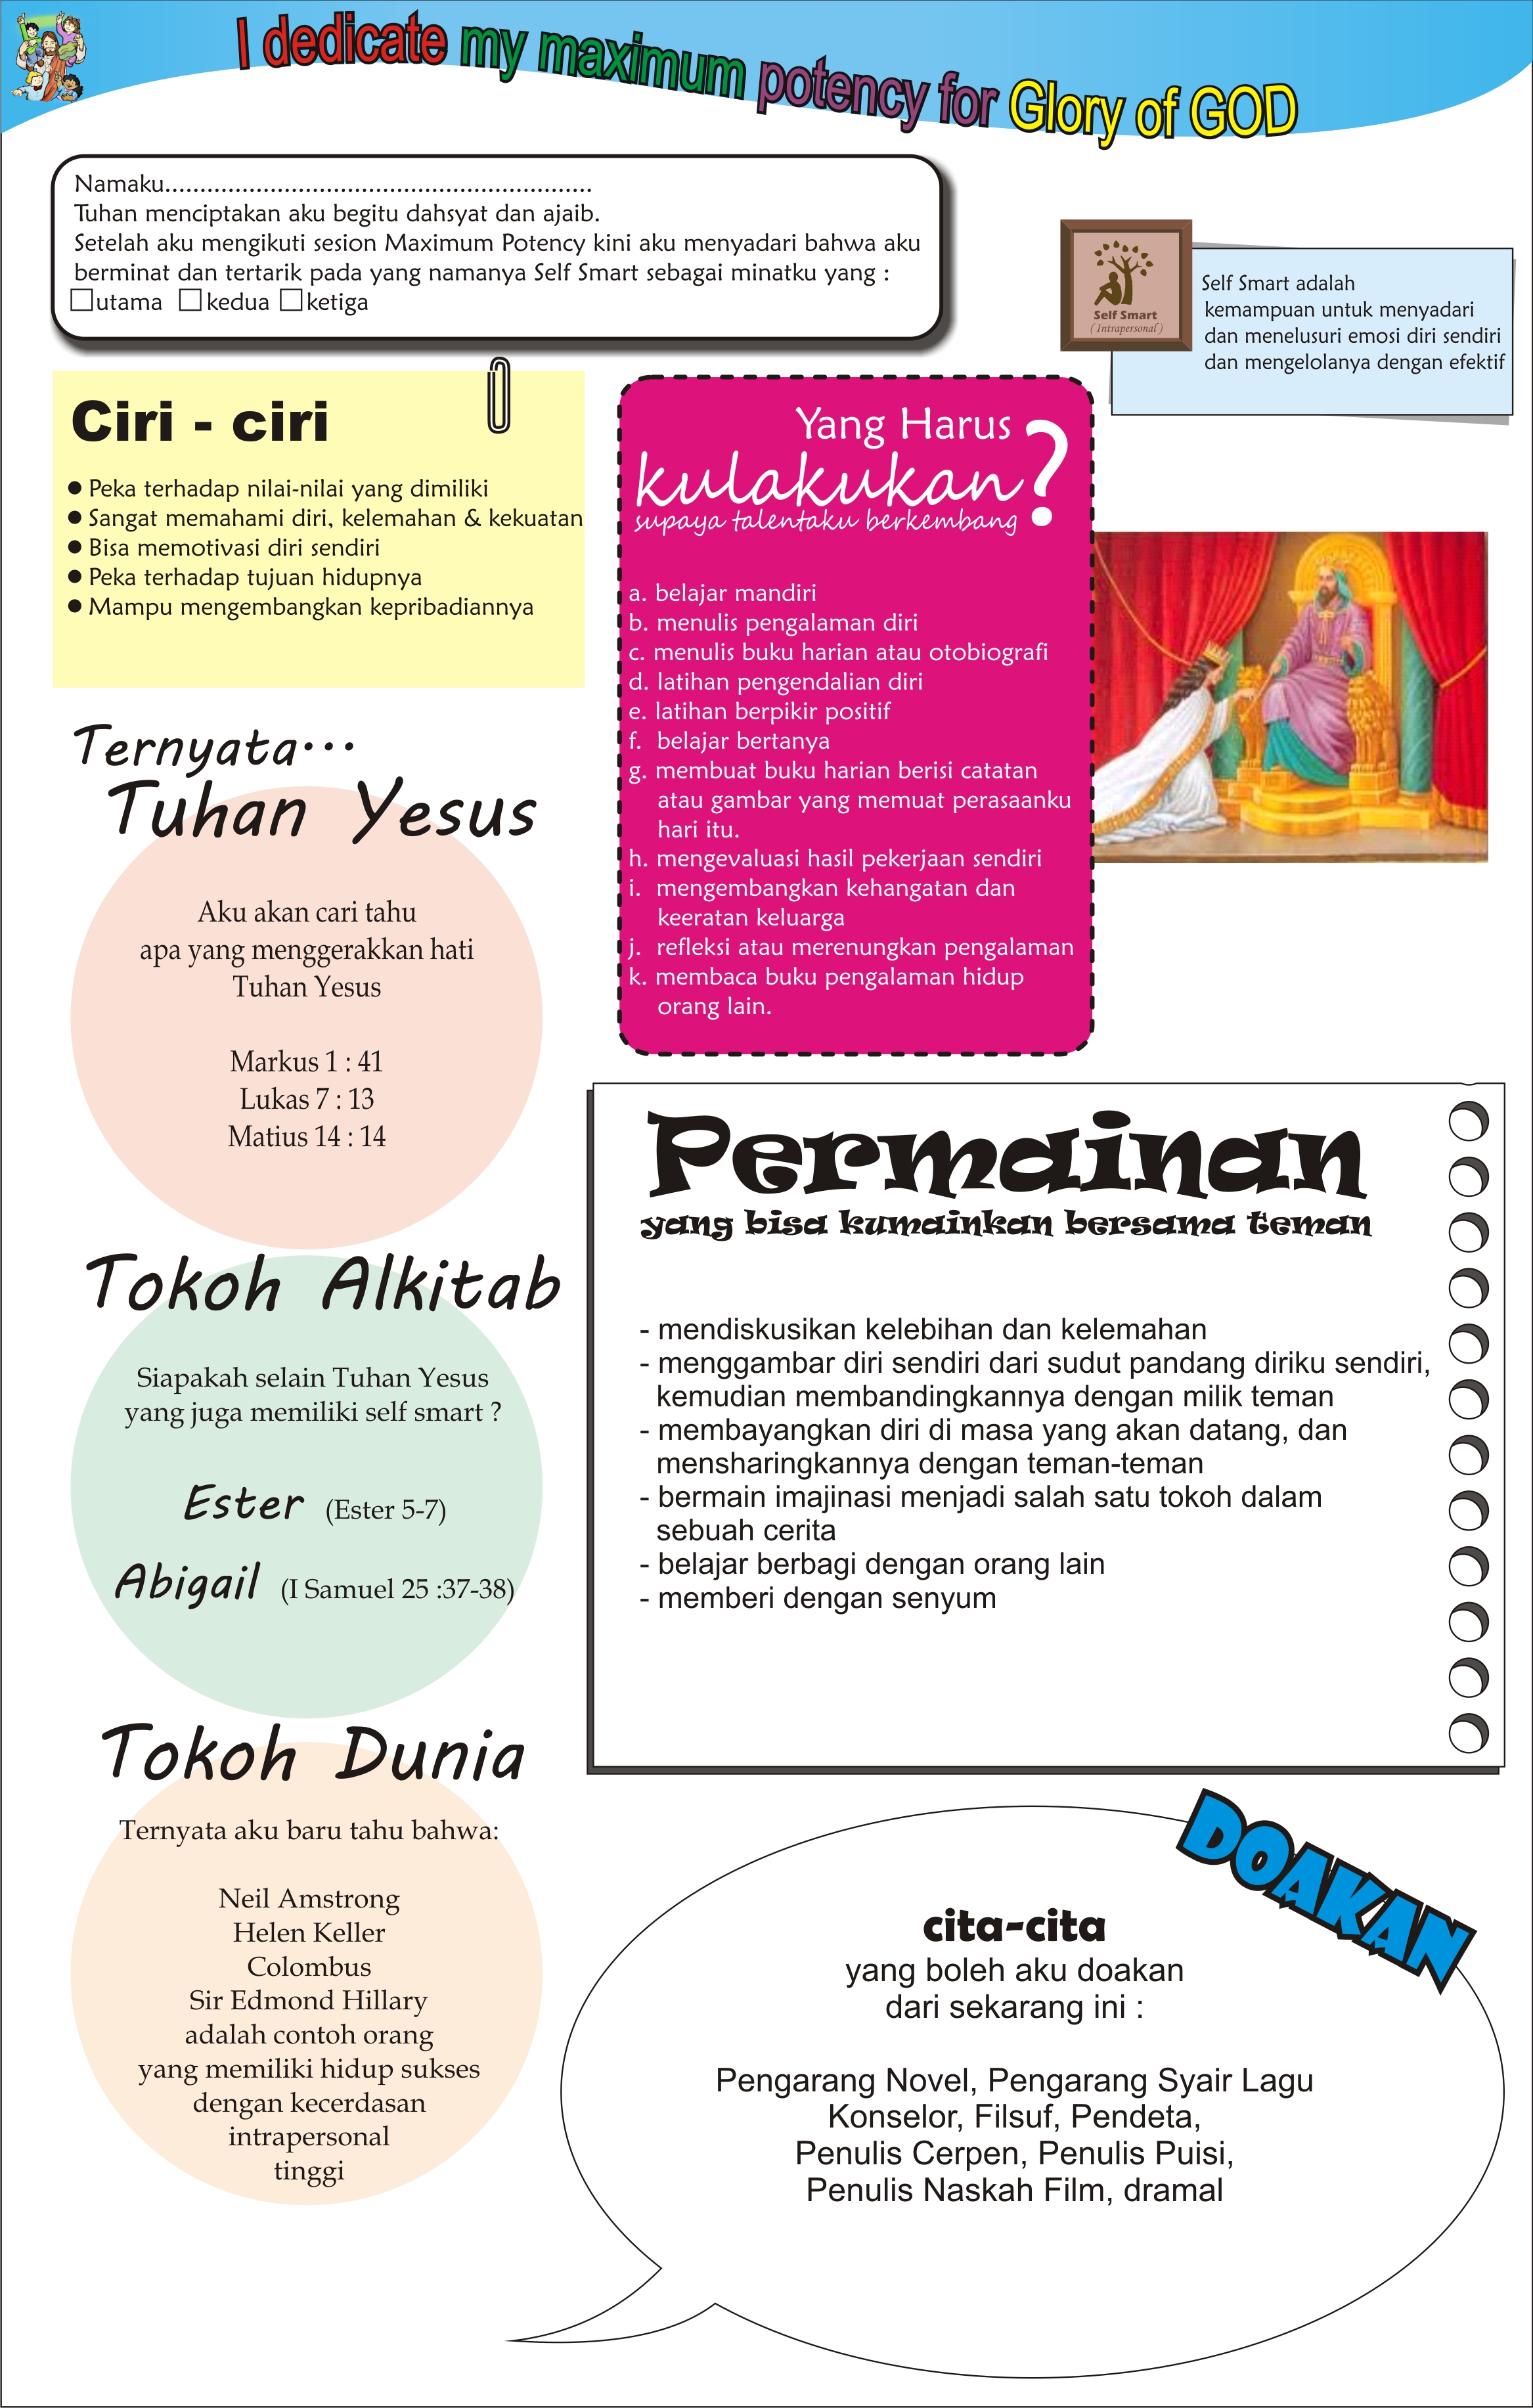 I dedicate my maximum potency for Glory of GOD
Namaku.............................................................
Tuhan menciptakan aku begitu dahsyat dan ajaib.
Setelah aku mengikuti sesion Maximum Potency kini aku menyadari bahwa aku
berminat dan tertarik pada yang namanya Self Smart sebagai minatku yang :
utama kedua ketiga
Self Smart
( Intrapersonal )
Self Smart adalah
kemampuan untuk menyadari
dan menelusuri emosi diri sendiri
dan mengelolanya dengan efektif
Ciri - ciri
● Peka terhadap nilai-nilai yang dimiliki
● Sangat memahami diri, kelemahan & kekuatan
● Bisa memotivasi diri sendiri
● Peka terhadap tujuan hidupnya
● Mampu mengembangkan kepribadiannya
Yang Harus
kulakukan?
supaya talentaku berkembang
a. belajar mandiri
b. menulis pengalaman diri
c. menulis buku harian atau otobiografi
d. latihan pengendalian diri
e. latihan berpikir positif
f. belajar bertanya
g. membuat buku harian berisi catatan
atau gambar yang memuat perasaanku
hari itu.
h. mengevaluasi hasil pekerjaan sendiri
i. mengembangkan kehangatan dan
keeratan keluarga
j. refleksi atau merenungkan pengalaman
k. membaca buku pengalaman hidup
orang lain.
Ternyata...
Tuhan Yesus
Aku akan cari tahu
apa yang menggerakkan hati
Tuhan Yesus
Markus 1 : 41
Lukas 7 : 13
Matius 14 : 14
Tokoh Alkitab
Siapakah selain Tuhan Yesus
yang juga memiliki self smart ?
Ester (Ester 5-7)
Abigail (I Samuel 25 :37-38)
Tokoh Dunia
Ternyata aku baru tahu bahwa:
Neil Amstrong
Helen Keller
Colombus
Sir Edmond Hillary
adalah contoh orang
yang memiliki hidup sukses
dengan kecerdasan
intrapersonal
tinggi
Permainan
yang bisa kumainkan bersama teman
- mendiskusikan kelebihan dan kelemahan
- menggambar diri sendiri dari sudut pandang diriku sendiri,
kemudian membandingkannya dengan milik teman
- membayangkan diri di masa yang akan datang, dan
mensharingkannya dengan teman-teman
- bermain imajinasi menjadi salah satu tokoh dalam
sebuah cerita
- belajar berbagi dengan orang lain
- memberi dengan senyum
DOAKAN
cita-cita
yang boleh aku doakan
dari sekarang ini :
Pengarang Novel, Pengarang Syair Lagu
Konselor, Filsuf, Pendeta,
Penulis Cerpen, Penulis Puisi,
Penulis Naskah Film, dramal